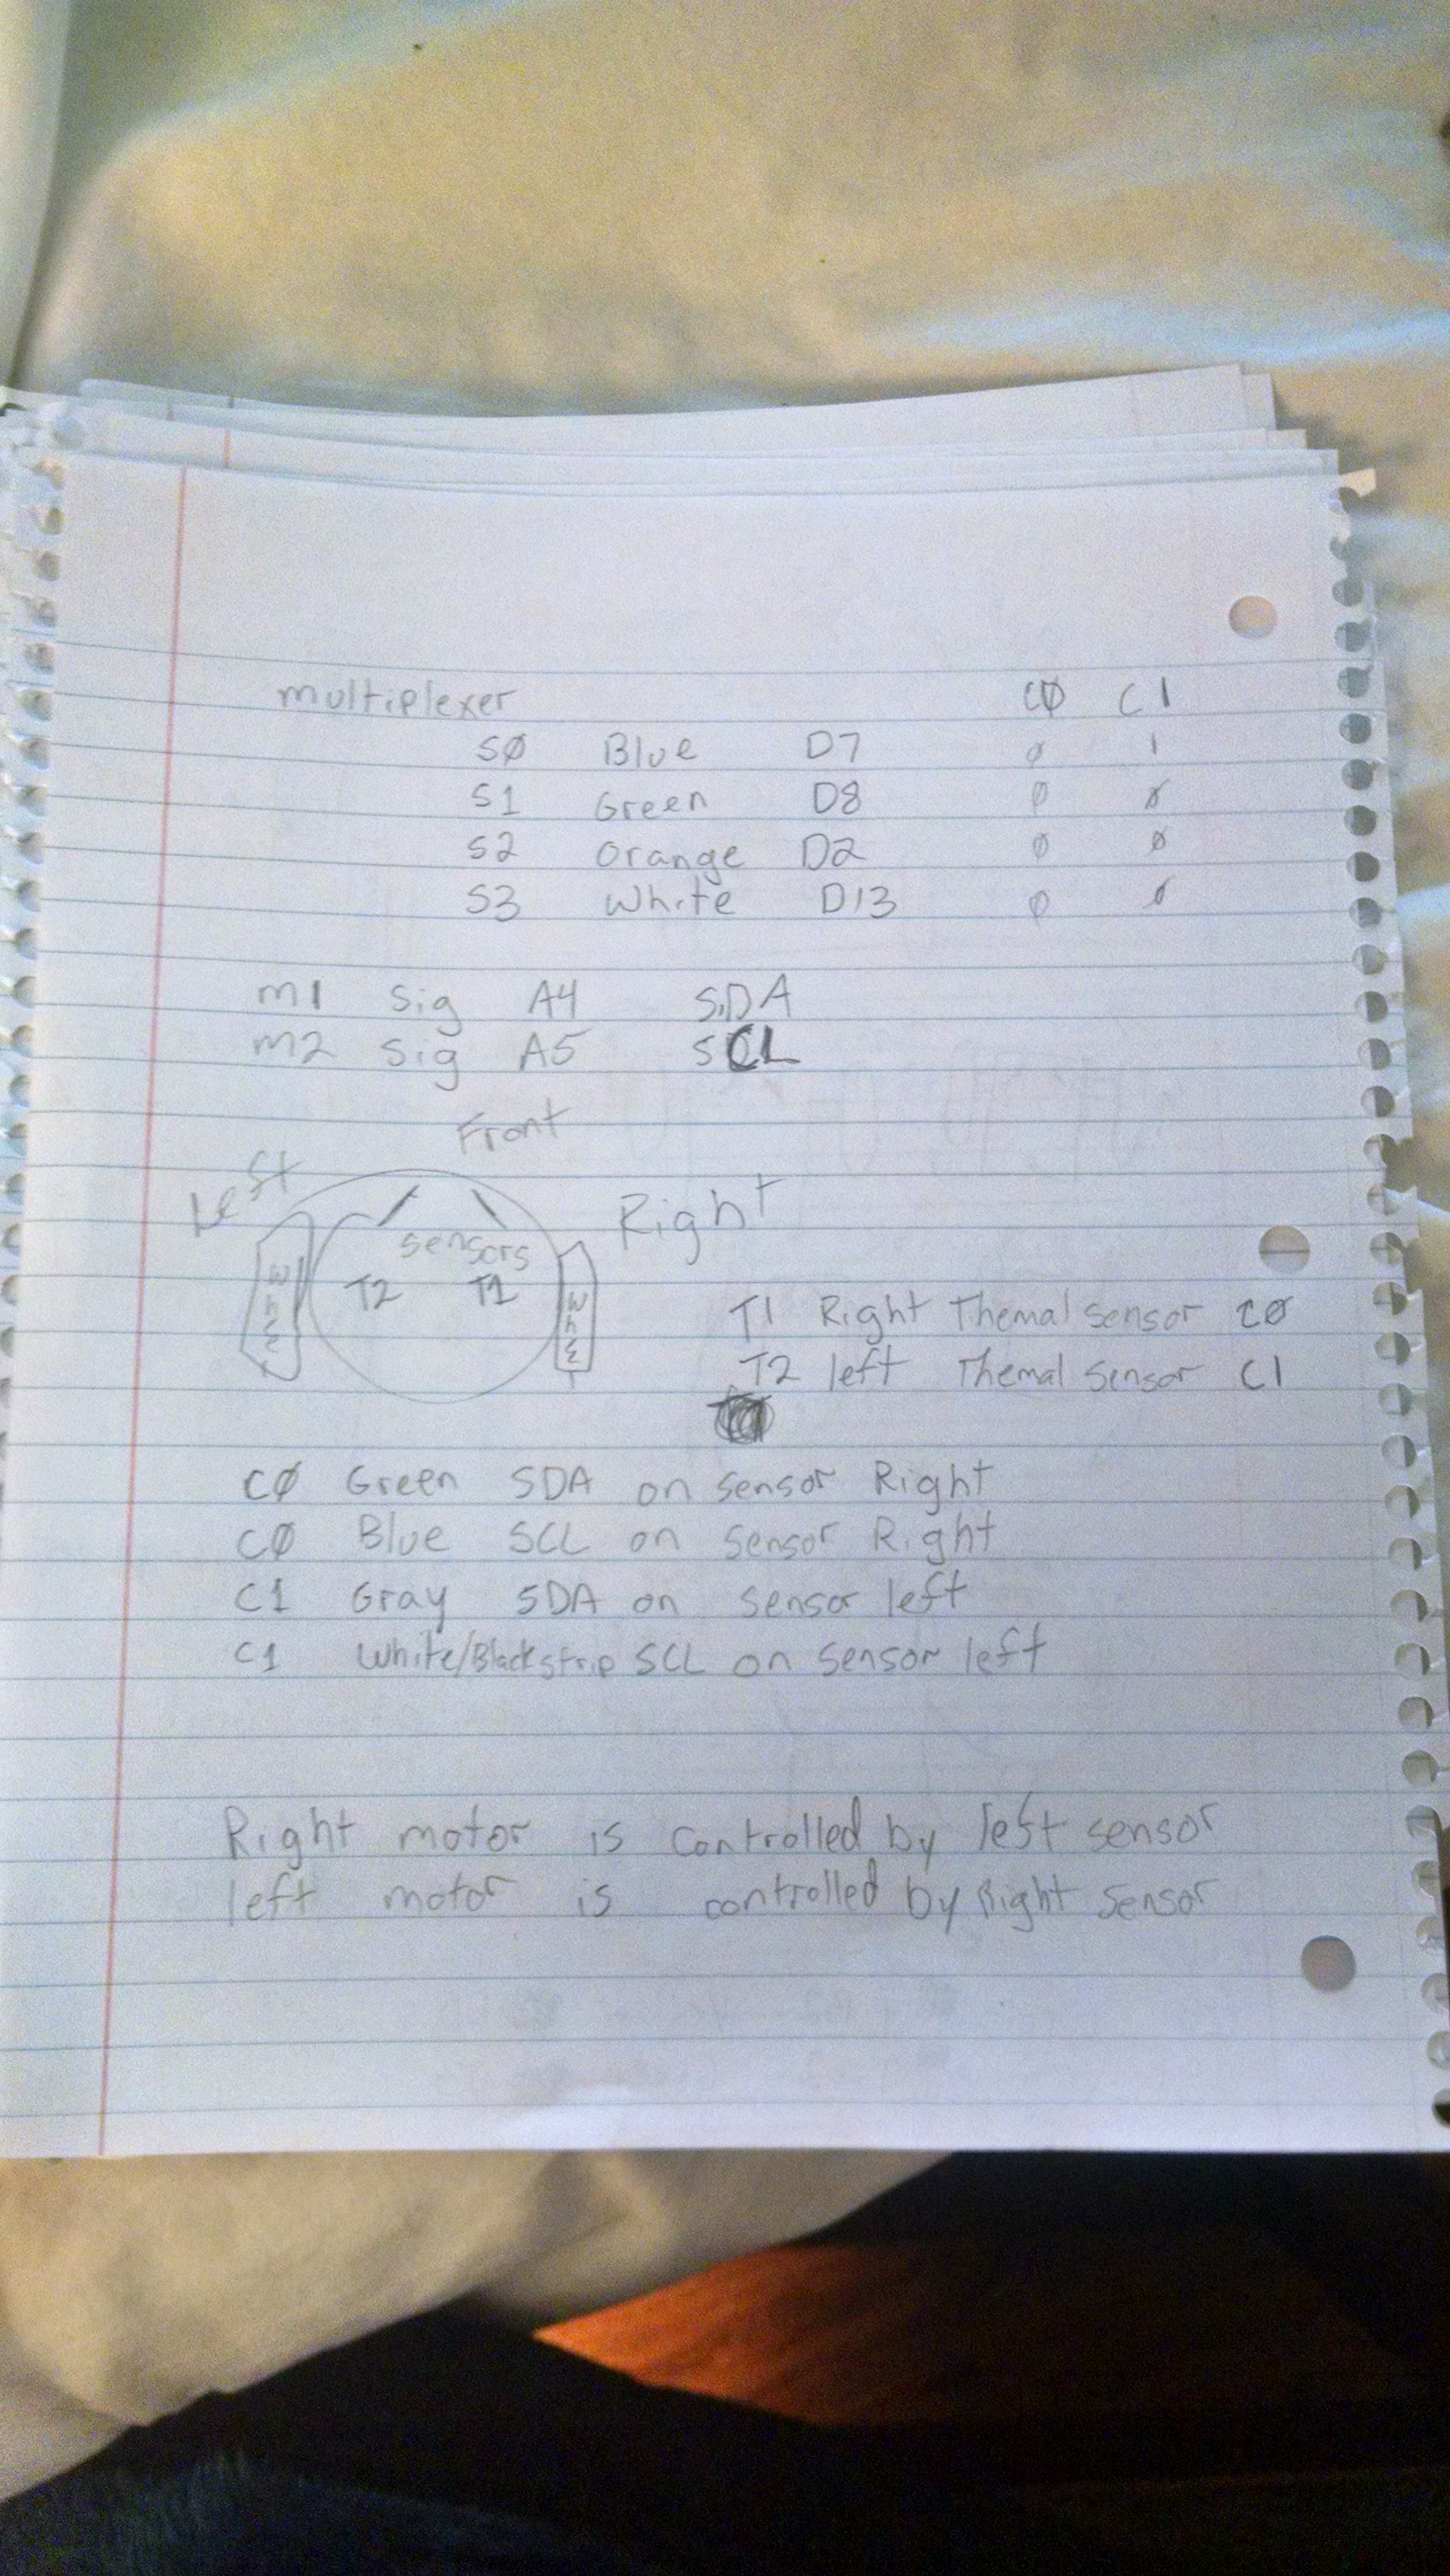 multiplexer CØ C1
SØ Blue D7 Ø 1
S1 Green D8 Ø Ø
S2 orange D2 Ø Ø
S3 white D13 Ø Ø
M1 sig A4 SDA
M2 sig A5 SCL
Front
Left
Right
sensors
T2 T1
T1 Right Themal sensor CØ
T2 left Themal sensor C1
CØ Green SDA on sensor Right
CØ Blue SCL on sensor Right
C1 Gray SDA on sensor left
C1 White/Blackstrip SCL on sensor left
Right motor is controlled by left sensor
left motor is controlled by Right sensor